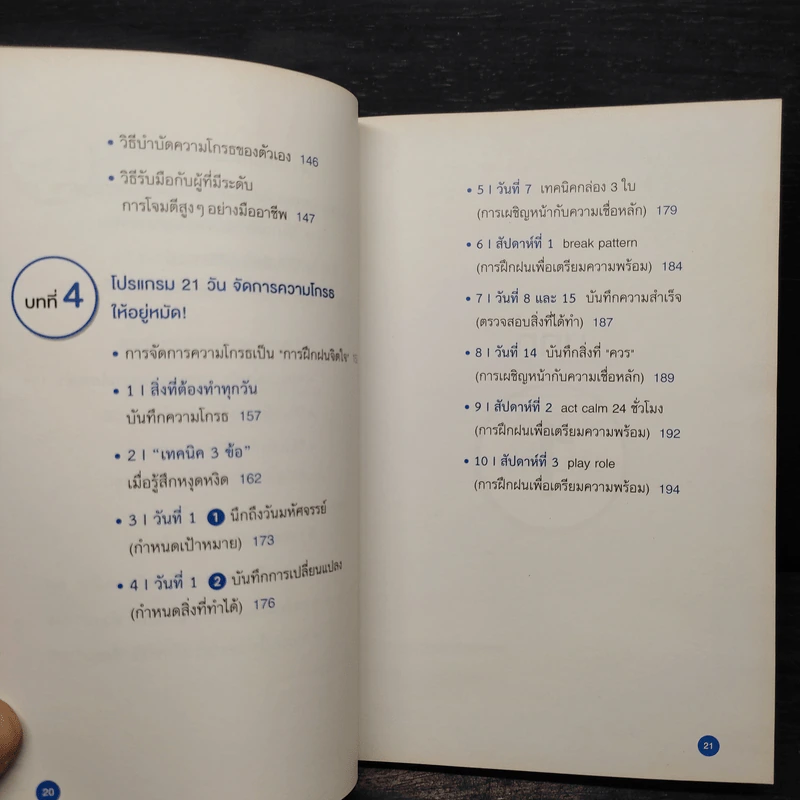 • วิธีบำบัดความโกรธของตัวเอง 146
• วิธีรับมือกับผู้ที่มีระดับ
การโจมตีสูงๆ อย่างมืออาชีพ 147
บทที่ 4
โปรแกรม 21 วัน จัดการความโกรธ
ให้อยู่หมัด!
• การจัดการความโกรธเป็น "การฝึกฝนจิตใจ"
• 1 | สิ่งที่ต้องทำทุกวัน
บันทึกความโกรธ 157
• 2 | "เทคนิค 3 ข้อ"
เมื่อรู้สึกหงุดหงิด 162
• 3 | วันที่ 1 ❶ นึกถึงวันมหัศจรรย์
(กำหนดเป้าหมาย) 173
• 4 | วันที่ 1 ❷ บันทึกการเปลี่ยนแปลง
(กำหนดสิ่งที่ทำได้) 176
20
• 5 | วันที่ 7 เทคนิคกล่อง 3 ใบ
(การเผชิญหน้ากับความเชื่อหลัก) 179
• 6 | สัปดาห์ที่ 1 break pattern
(การฝึกฝนเพื่อเตรียมความพร้อม) 184
• 7 | วันที่ 8 และ 15 บันทึกความสำเร็จ
(ตรวจสอบสิ่งที่ได้ทำ) 187
• 8 | วันที่ 14 บันทึกสิ่งที่ "ควร"
(การเผชิญหน้ากับความเชื่อหลัก) 189
• 9 | สัปดาห์ที่ 2 act calm 24 ชั่วโมง
(การฝึกฝนเพื่อเตรียมความพร้อม) 192
• 10 | สัปดาห์ที่ 3 play role
(การฝึกฝนเพื่อเตรียมความพร้อม) 194
21